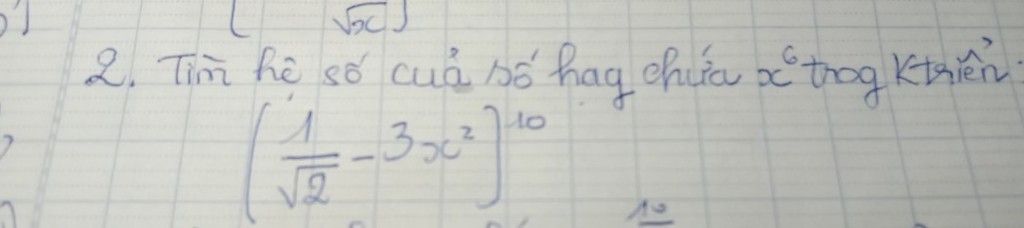 [ √x ]
2. Tìm hệ số của số hạg chứa x⁶ trog Ktriển
[1/√2 - 3x²]¹⁰
10